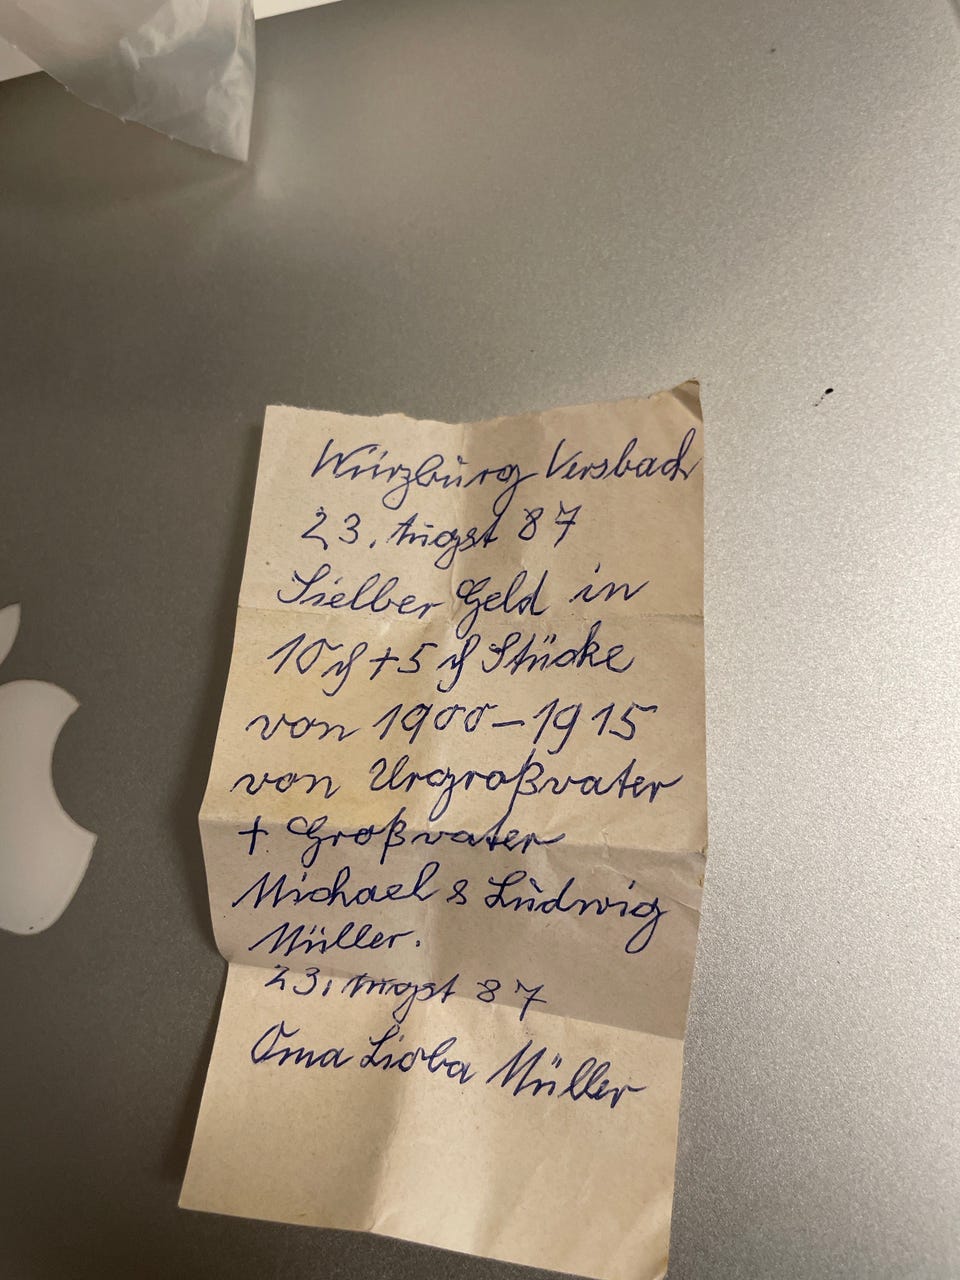 Würzburg Versbach
23. Augst 87
Sielber Geld in
10 ₰ + 5 ₰ Stücke
von 1900 – 1915
von Urgroßvater
+ Großvater
Michael & Ludwig
Müller.
23. Augst 87
Oma Lioba Müller